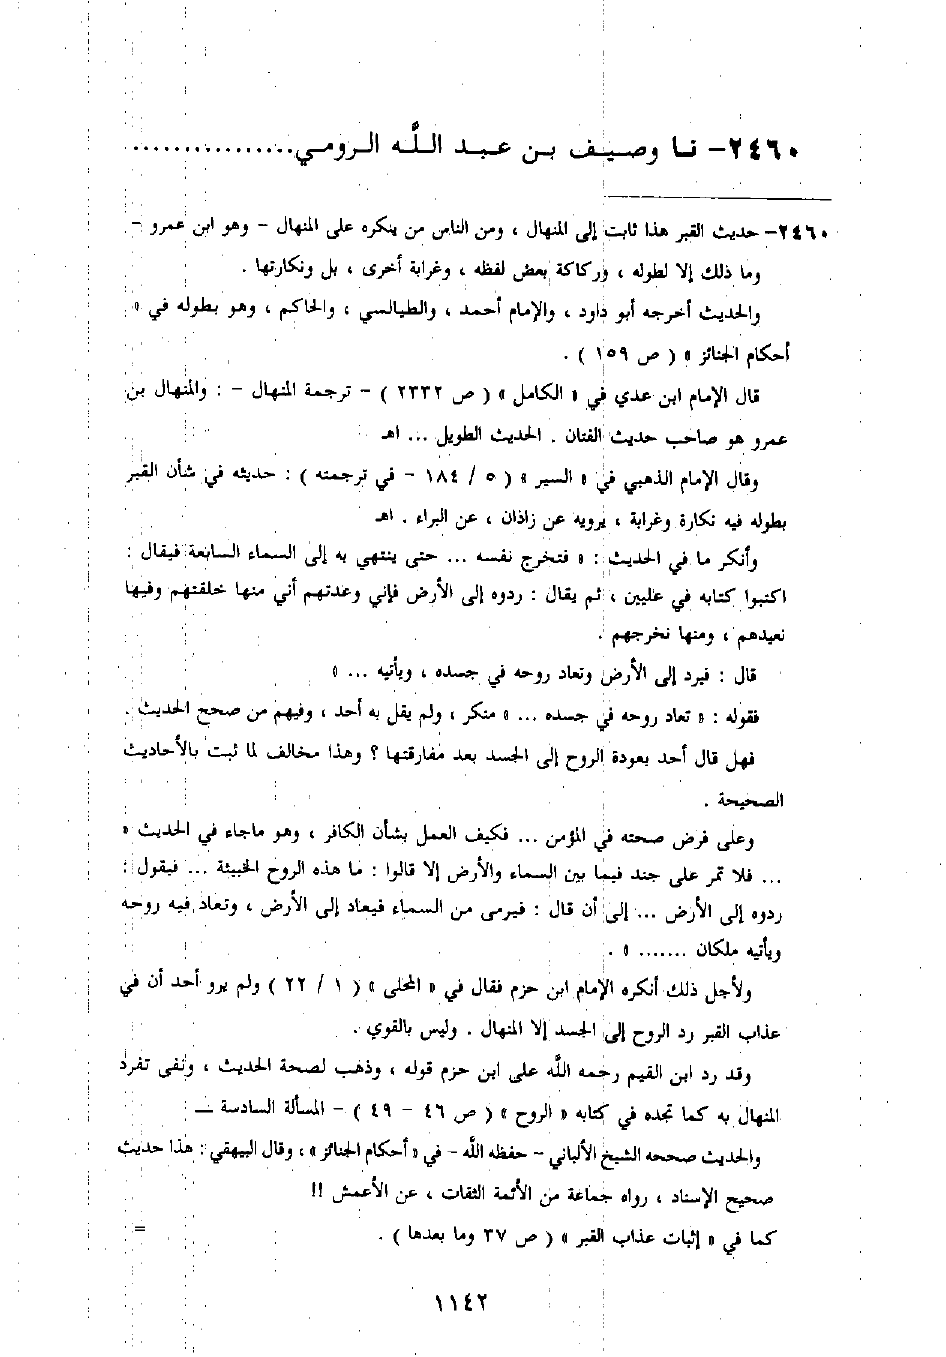 ٢٤٦٠- نـا وصـيـف بـن عـبـد الـلَّـه الـرومـي................
٢٤٦٠- حديث القبر هذا ثابت إلى المنهال ، ومن الناس من ينكره على المنهال – وهو ابن عمرو –
وما ذلك إلا لطوله ، وركاكة بعض لفظه ، وغرابة أخرى ، بل ونكارتها .
والحديث أخرجه أبو داود ، والإمام أحمد ، والطيالسي ، والحاكم ، وهو بطوله في «
أحكام الجنائز » ( ص ١٥٩ ) .
قال الإمام ابن عدي في « الكامل » ( ص ٢٣٣٢ ) – ترجمة المنهال – : والمنهال بن
عمرو هو صاحب حديث الفتان . الحديث الطويل ... اهـ
وقال الإمام الذهبي في « السير » ( ٥ / ١٨٤ – في ترجمته ) : حديثه في شأن القبر
بطوله فيه نكارة وغرابة ، يرويه عن زاذان ، عن البراء . اهـ
وأنكر ما في الحديث : « فتخرج نفسه ... حتى ينتهي به إلى السماء السابعة فيقال :
اكتبوا كتابه في عليين ، ثم يقال : ردوه إلى الأرض فإني وعدتهم أني منها خلقتهم وفيها
نعيدهم ، ومنها نخرجهم .
قال : فيرد إلى الأرض وتعاد روحه في جسده ، ويأتيه ... »
فقوله : « تعاد روحه في جسده ... » منكر ، ولم يقل به أحد ، وفيهم من صحح الحديث .
فهل قال أحد بعودة الروح إلى الجسد بعد مفارقتها ؟ وهذا مخالف لما ثبت بالأحاديث
الصحيحة .
وعلى فرض صحته في المؤمن ... فكيف العمل بشأن الكافر ، وهو ماجاء في الحديث «
... فلا تمر على جند فيما بين السماء والأرض إلا قالوا : ما هذه الروح الخبيثة ... فيقول :
ردوه إلى الأرض ... إلى أن قال : فيرمى من السماء فيعاد إلى الأرض ، وتعاد فيه روحه
ويأتيه ملكان ....... » .
ولأجل ذلك أنكره الإمام ابن حزم فقال في « المحلى » ( ١ / ٢٢ ) ولم يرو أحد أن في
عذاب القبر رد الروح إلى الجسد إلا المنهال . وليس بالقوي .
وقد رد ابن القيم رحمه اللَّه على ابن حزم قوله ، وذهب لصحة الحديث ، ونفى تفرد
المنهال به كما تجده في كتابه « الروح » ( ص ٤٦ – ٤٩ ) – المسألة السادسة –
والحديث صححه الشيخ الألباني – حفظه اللَّه – في « أحكام الجنائز » ، وقال البيهقي : هذا حديث
صحيح الإسناد ، رواه جماعة من الأئمة الثقات ، عن الأعمش !!
كما في « إثبات عذاب القبر » ( ص ٣٧ وما بعدها ) .
=
١١٤٢